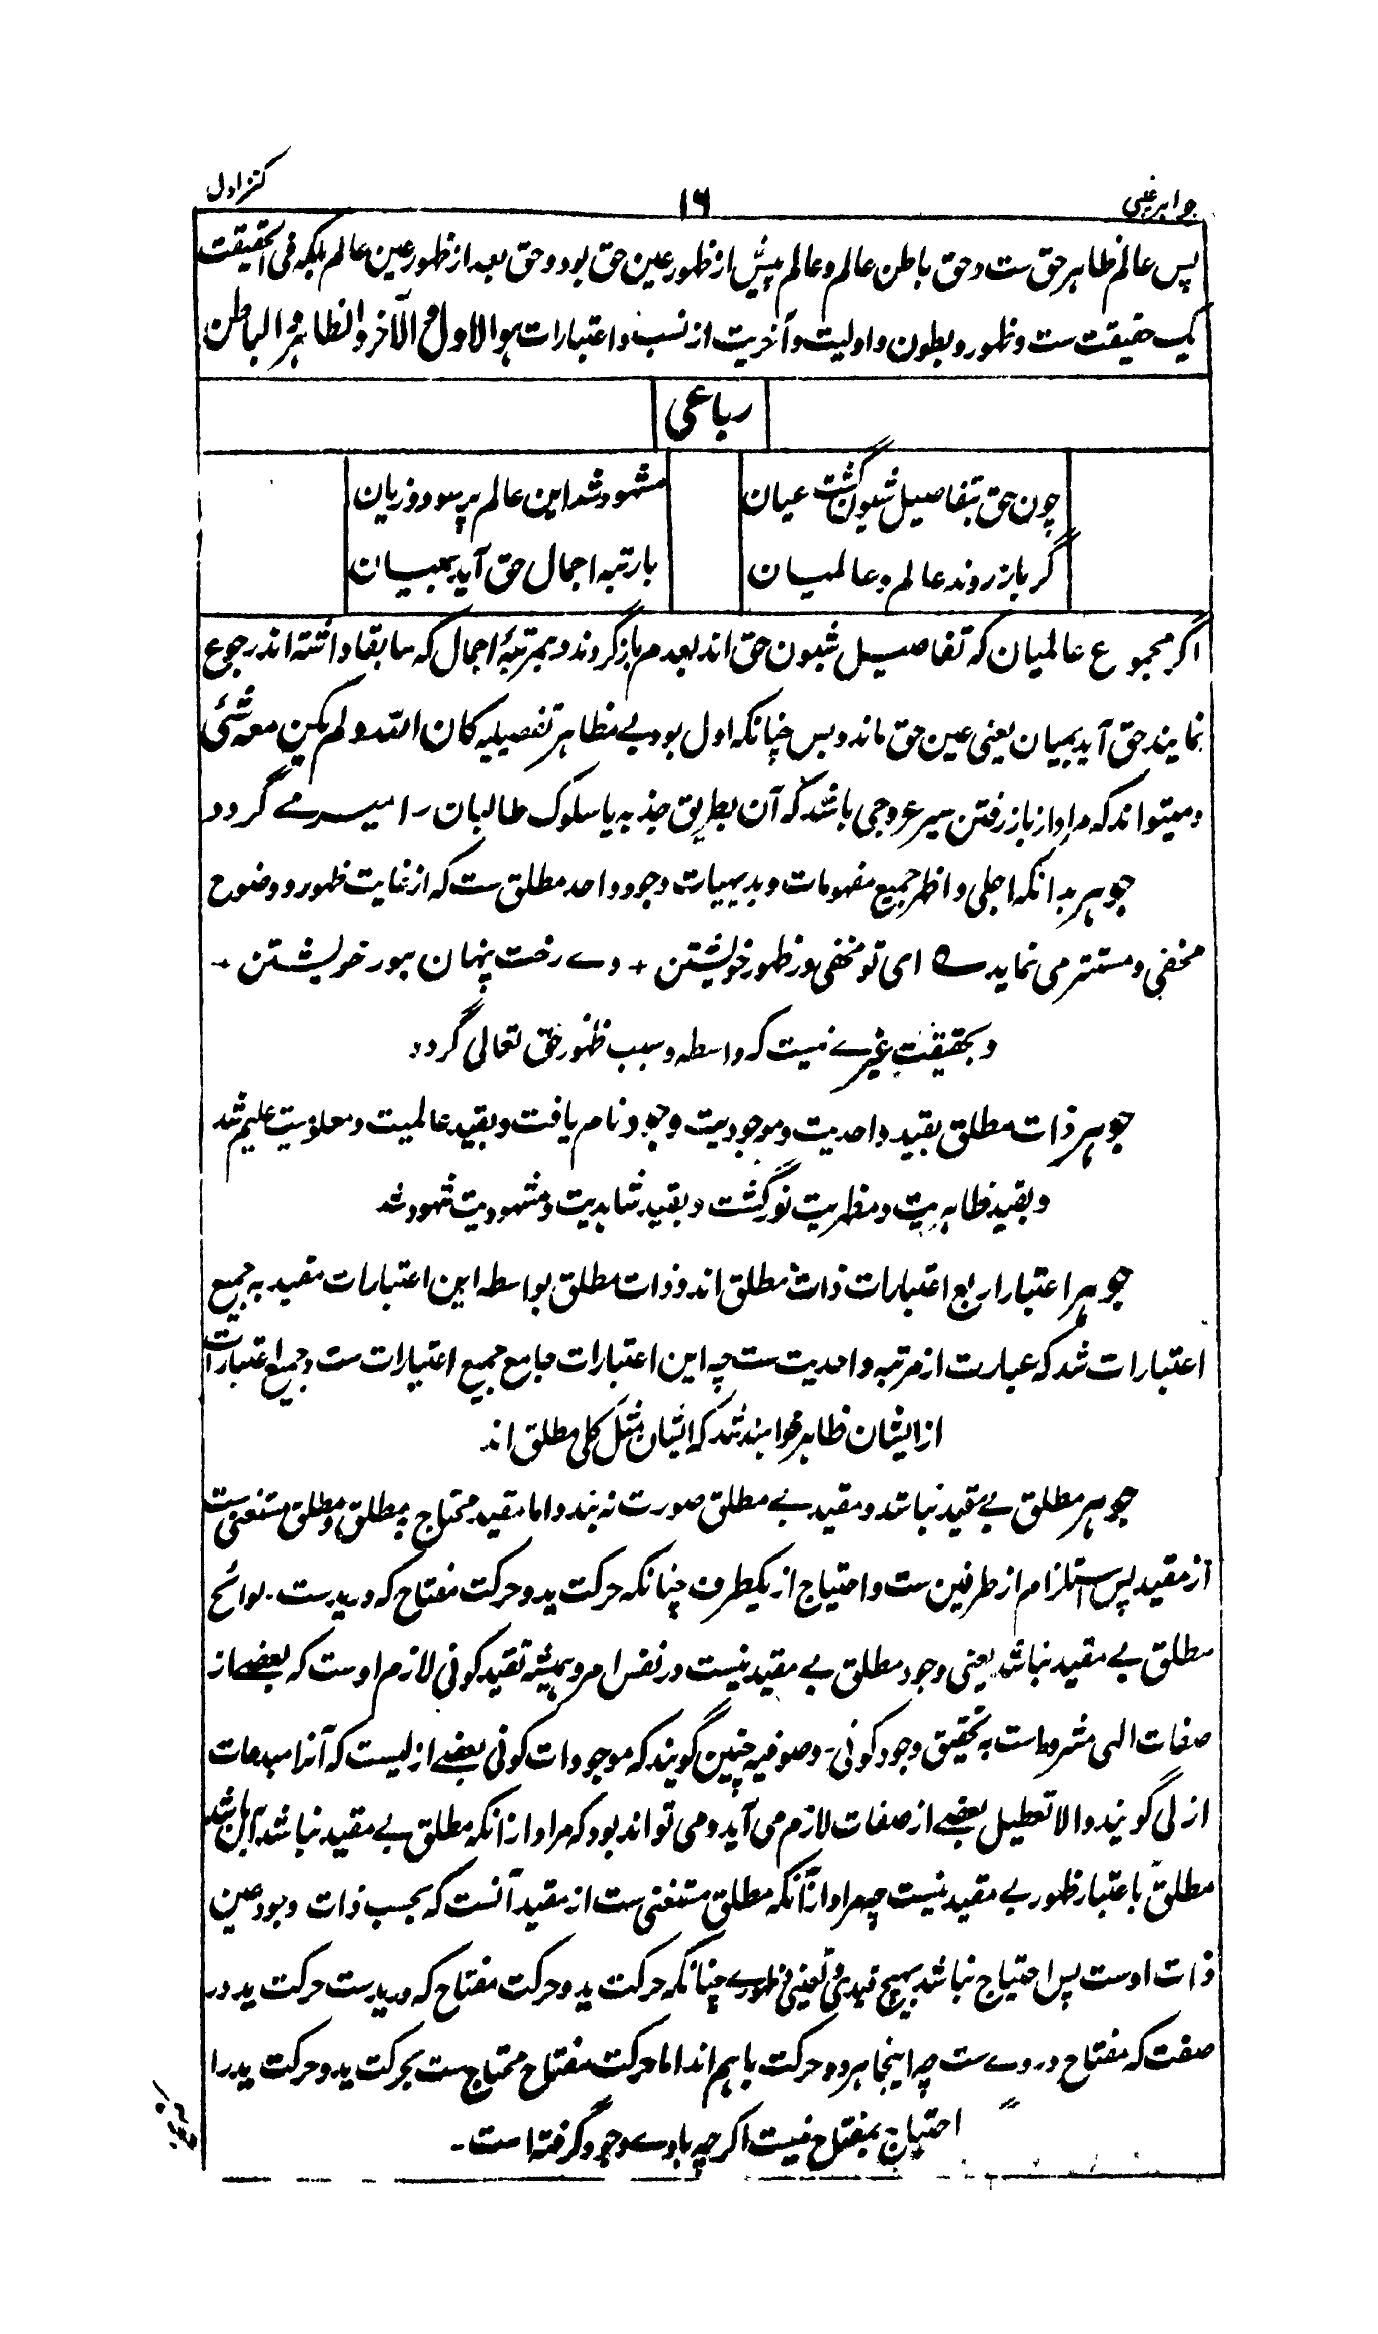 جواهر غیبی
۱۶
کنز اول
پس عالم ظاهر حق ست و حق باطن عالم و عالم پیش از ظهور عین حق بود و حق بعد از ظهور عین عالم بلکه فی الحقیقت
یک حقیقت ست و ظهور و بطون و اولیت و آخریت از نسب و اعتبارات هو الاول و الآخر و الظاهر و الباطن
رباعی
چون حق بتفاصیل شیون گشت عیان مشهود شد این عالم پر سود و زیان
گر باز روند عالم و عالمیان با رتبه اجمال حق آید بمیان
اگر مجموع عالمیان که تفاصیل شیون حق اند بعدم باز گردند و بمرتبهٔ اجمال که سابقا داشته اند رجوع
نمایند حق آید بمیان یعنی عین حق ماند و بس چنانکه اول بود بے مظاهر تفصیلیه کان الله و لم یکن معه شئی
و میتواند که مراد از باز رفتن سیر عروجی باشد که آن بطریق جذبه یا سلوک طالبان را میسر مے گردد
جوهر بدانکه اجلی و اظهر جمیع مفهومات و بدیهیات وجود واحد مطلق ست که از غایت ظهور و وضوح
مخفی و مستتر می نماید ؎ ای تو مخفی در ظهور خویشتن + وے رخت پنهان بنور خویشتن +
و بحقیقت غیرے نیست که واسطه و سبب ظهور حق تعالی گردد
جوهر ذات مطلق بقید واحدیت و موجودیت وجود نام یافت و بقید عالمیت و معلومیت علیم شد
و بقید ظاهریت و مظهریت نور گشت و بقید شاهدیت و مشهودیت شهود شد
جوهر اعتبار اربع اعتبارات ذات مطلق اند و ذات مطلق بواسطه این اعتبارات مقید به جمیع
اعتبارات شد که عبارت از مرتبه واحدیت ست چه این اعتبارات جامع جمیع اعتبارات ست و جمیع اعتبارات
از ایشان ظاهر خواهند شد که ایشان مثل کلی مطلق اند
جوهر مطلق بے مقید نباشد و مقید بے مطلق صورت نه بندد اما مقید محتاج بمطلق و مطلق مستغنی ست
از مقید پس استلزام از طرفین ست و احتیاج از یکطرف چنانکه حرکت ید و حرکت مفتاح که در ید ست . لوائح
مطلق بے مقید نباشد یعنی وجود مطلق بے مقید نیست در نفس امر و همیشه تقید کونی لازم اوست که بعضے از
صفات الهی مشروط است به تحقیق وجود کونی - و صوفیه چنین گویند که موجودات کونی بعضے ازلیست که آنرا مبدعات
ازلی گویند والا تعطیل بعضے از صفات لازم می آید و می تواند بود که مراد از انکه مطلق بے مقید نباشد این باشد
مطلق باعتبار ظهور بے مقید نیست چه مراد از آنکه مطلق مستغنی ست از مقید آنست که بحسب ذات وجود عین
ذات اوست پس احتیاج نباشد بهیچ قیدی و تعینی ظهورے چنانکه حرکت ید و حرکت مفتاح که در ید ست حرکت ید در
صفت که مفتاح در وے ست چه اینجا هر دو حرکت با هم اند اما حرکت مفتاح محتاج ست بحرکت ید و حرکت ید را
احتیاج بمفتاح نیست اگر چه با وے وجود گرفته است -